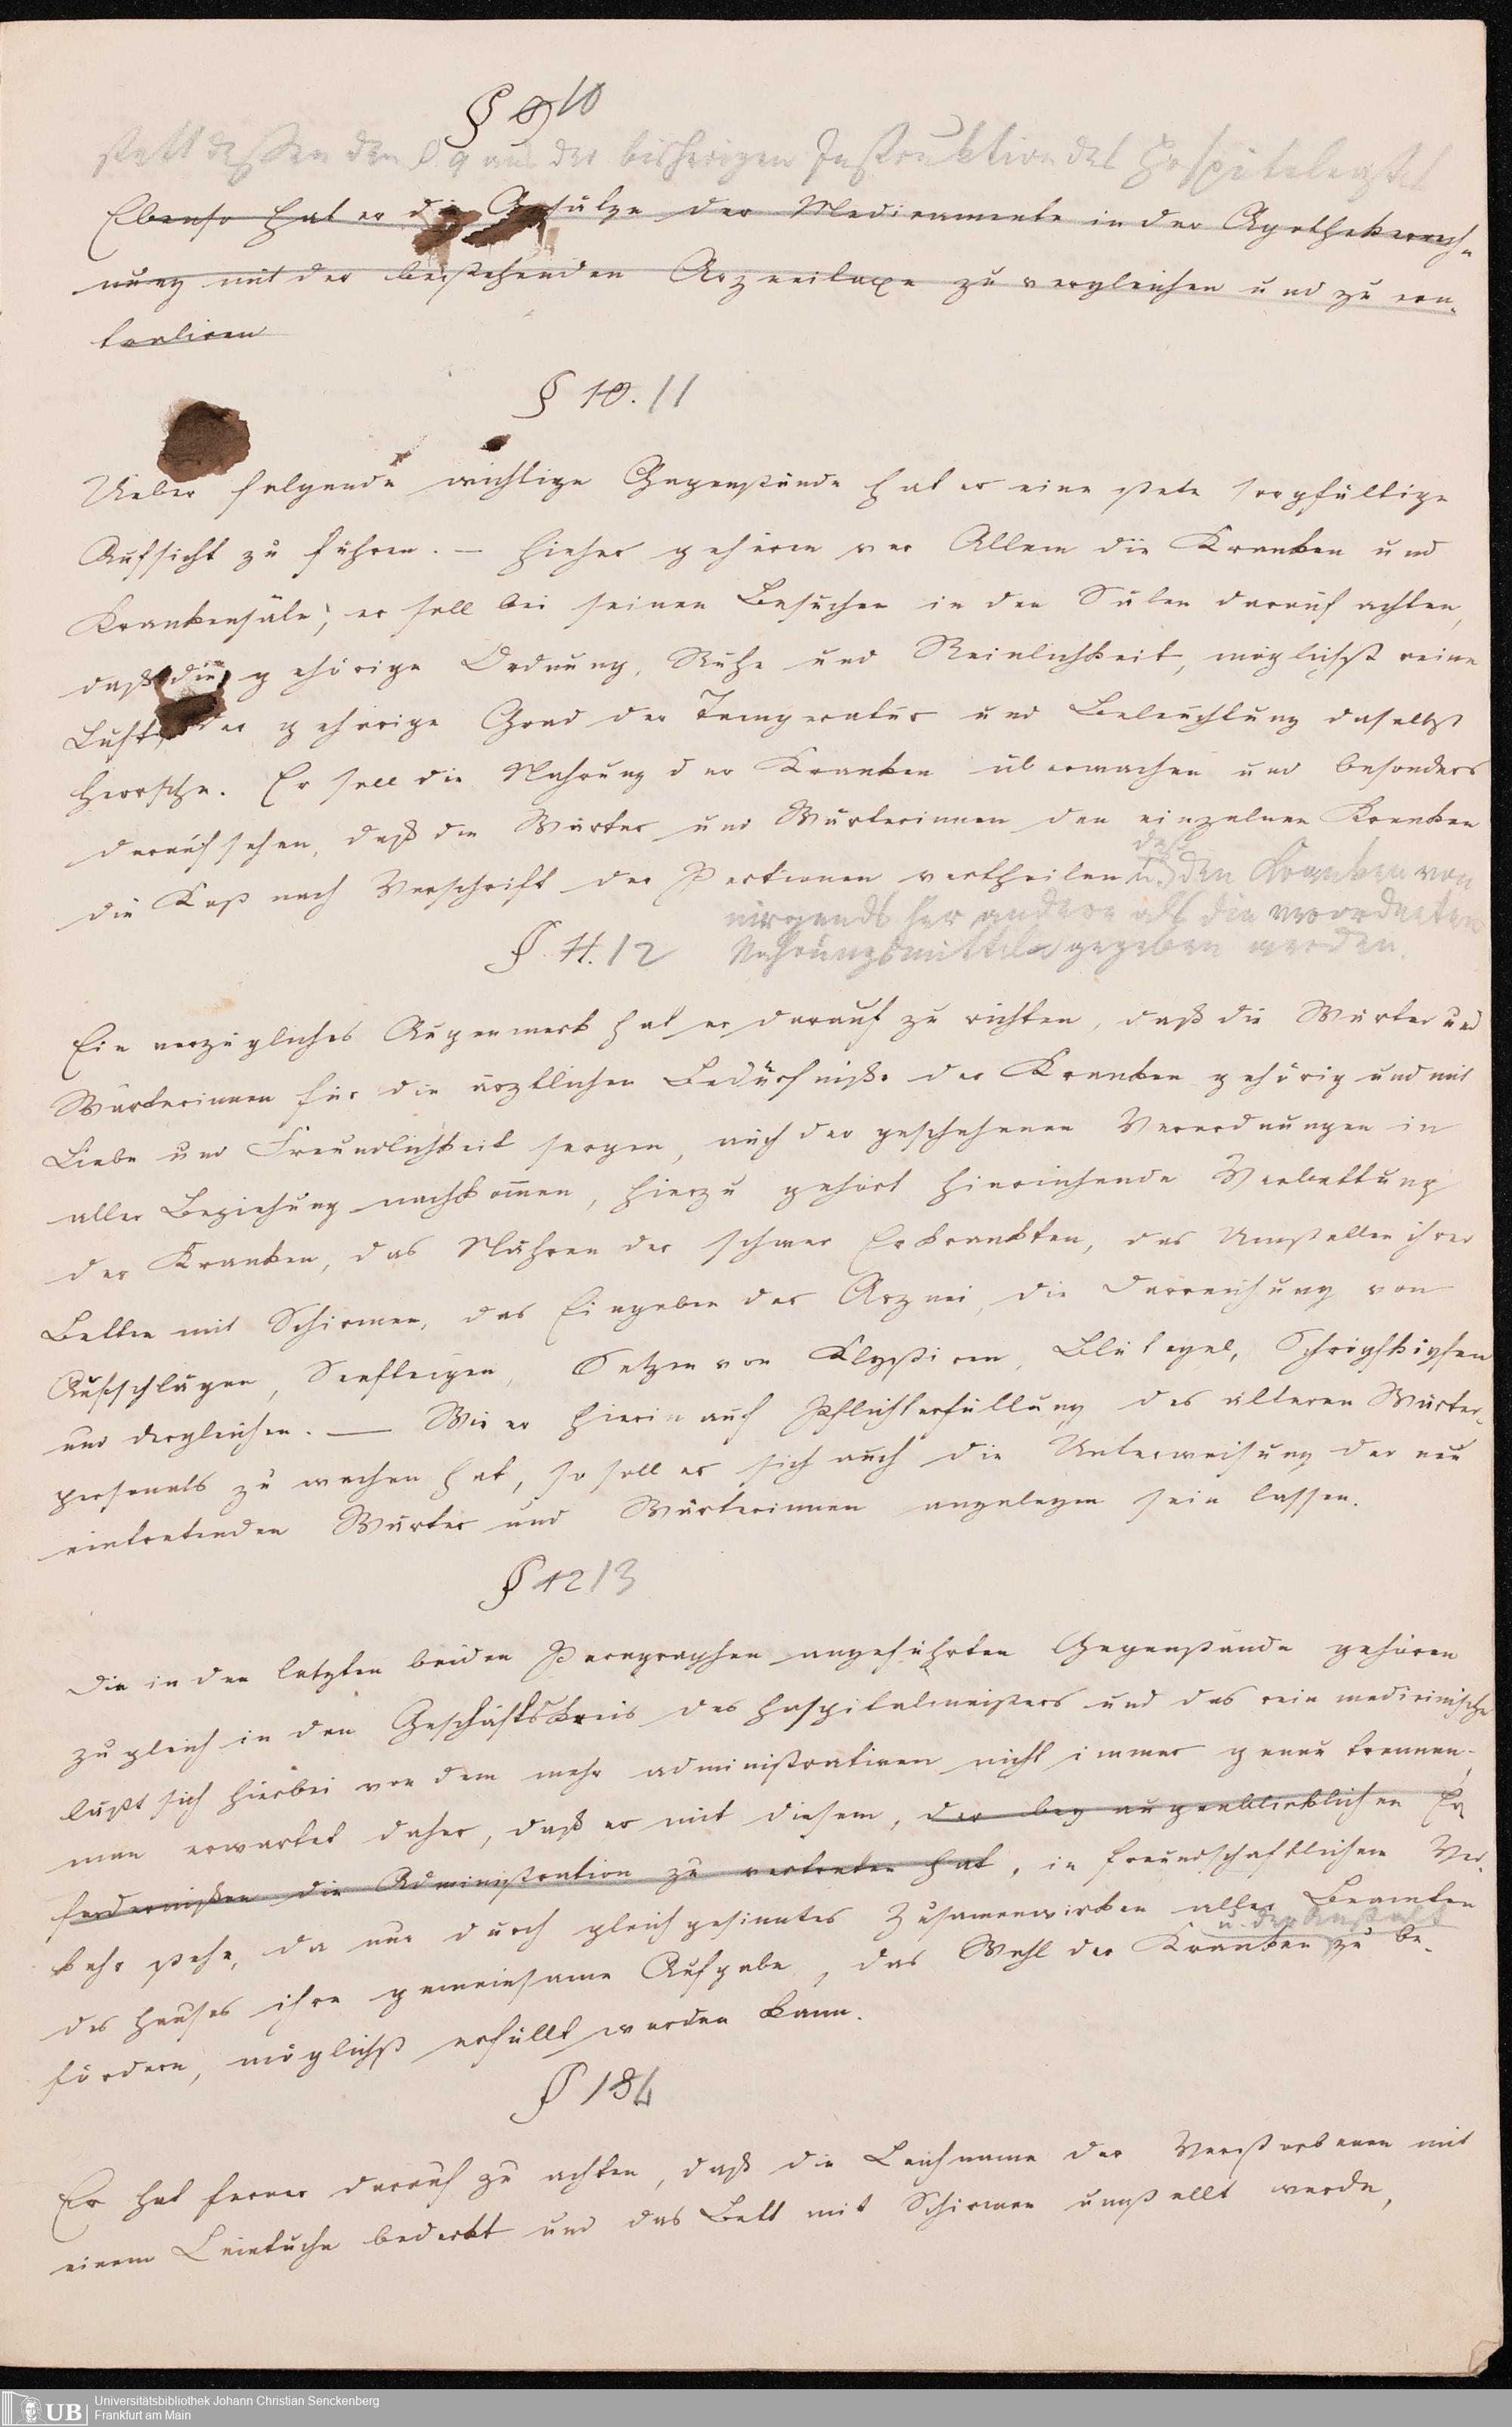 § 9 10
statt dessen den § 9 aus der bisherigen Instruktion des Hospitalarztes
Ebenso hat er die Ansätze der Medicamente in der Apothekerrech-
nung mit der bestehenden Arzneitaxe zu vergleichen und zu con-
troliren
§ 10. 11
Ueber folgende wichtige Gegenstände hat er eine stete sorgfältige
Aufsicht zu führen. — Hieher gehören vor Allem die Kranken und
Krankensäle; er soll bei seinen Besuchen in den Sälen darauf achten,
daß die gehörige Ordnung, Ruhe und Reinlichkeit, möglichst reine
Luft, der gehörige Grad der Temperatur und Beleuchtung daselbst
herrsche. Er soll die Nahrung der Kranken überwachen und besonders
darauf sehen, daß die Wärter und Wärterinnen den einzelnen Kranken
die Kost nach Vorschrift der Portionen vertheilen u. daß den Kranken von
nirgends her andere als die verordneten
§. 11. 12 Nahrungsmittel gegeben werden.
Ein vorzügliches Augenmerk hat er darauf zu richten, daß die Wärter und
Wärterinnen für die ärztlichen Bedürfniße der Kranken gehörig und mit
Liebe und Freundlichkeit sorgen, auch der geschehenen Verordnungen in
aller Beziehung nachkommen, hierzu gehört hinreichende Verbettung
der Kranken, das Nähren der schwer Erkrankten, das Umstellen ihrer
Betten mit Schirmen, das Eingeben der Arznei, die Darreichung von
Aufschlägen, Senfteigen, Setzen von Klystiren, Blutegel, Schröpfköpfen
und dergleichen. — Wie er hierin auf Pflichterfüllung des älteren Wärter-
personals zu wachen hat, so soll er sich auch die Unterweisung der neu
eintretenden Wärter und Wärterinnen angelegen sein lassen.
§ 12 13
Die in den letzten beiden Paragraphen angeführten Gegenstände gehören
zugleich in den Geschäftskreis des Hospitalmeisters und das rein medicinische
läßt sich hierbei von dem mehr administrativen nicht immer genau trennen.
man erwartet daher, daß er mit diesem, der bey augenblicklichen Er-
fordernißen die Administration zu vertreten hat, in freundschaftlichem Ver-
kehr stehe, da nur durch gleichgesinntes Zusamenwirken aller Beamten
des Hauses ihre gemeinsame Aufgabe, das Wohl der Kranken u. der Anstalt zu be-
fördern, möglichst erfüllt werden kann.
§ 13 4
Er hat ferner darauf zu achten, daß die Leichname der Verstorbenen mit
einem Leintuche bedeckt und das Bett mit Schirmen umstellt werde,
UB
Universitätsbibliothek Johann Christian Senckenberg
Frankfurt am Main